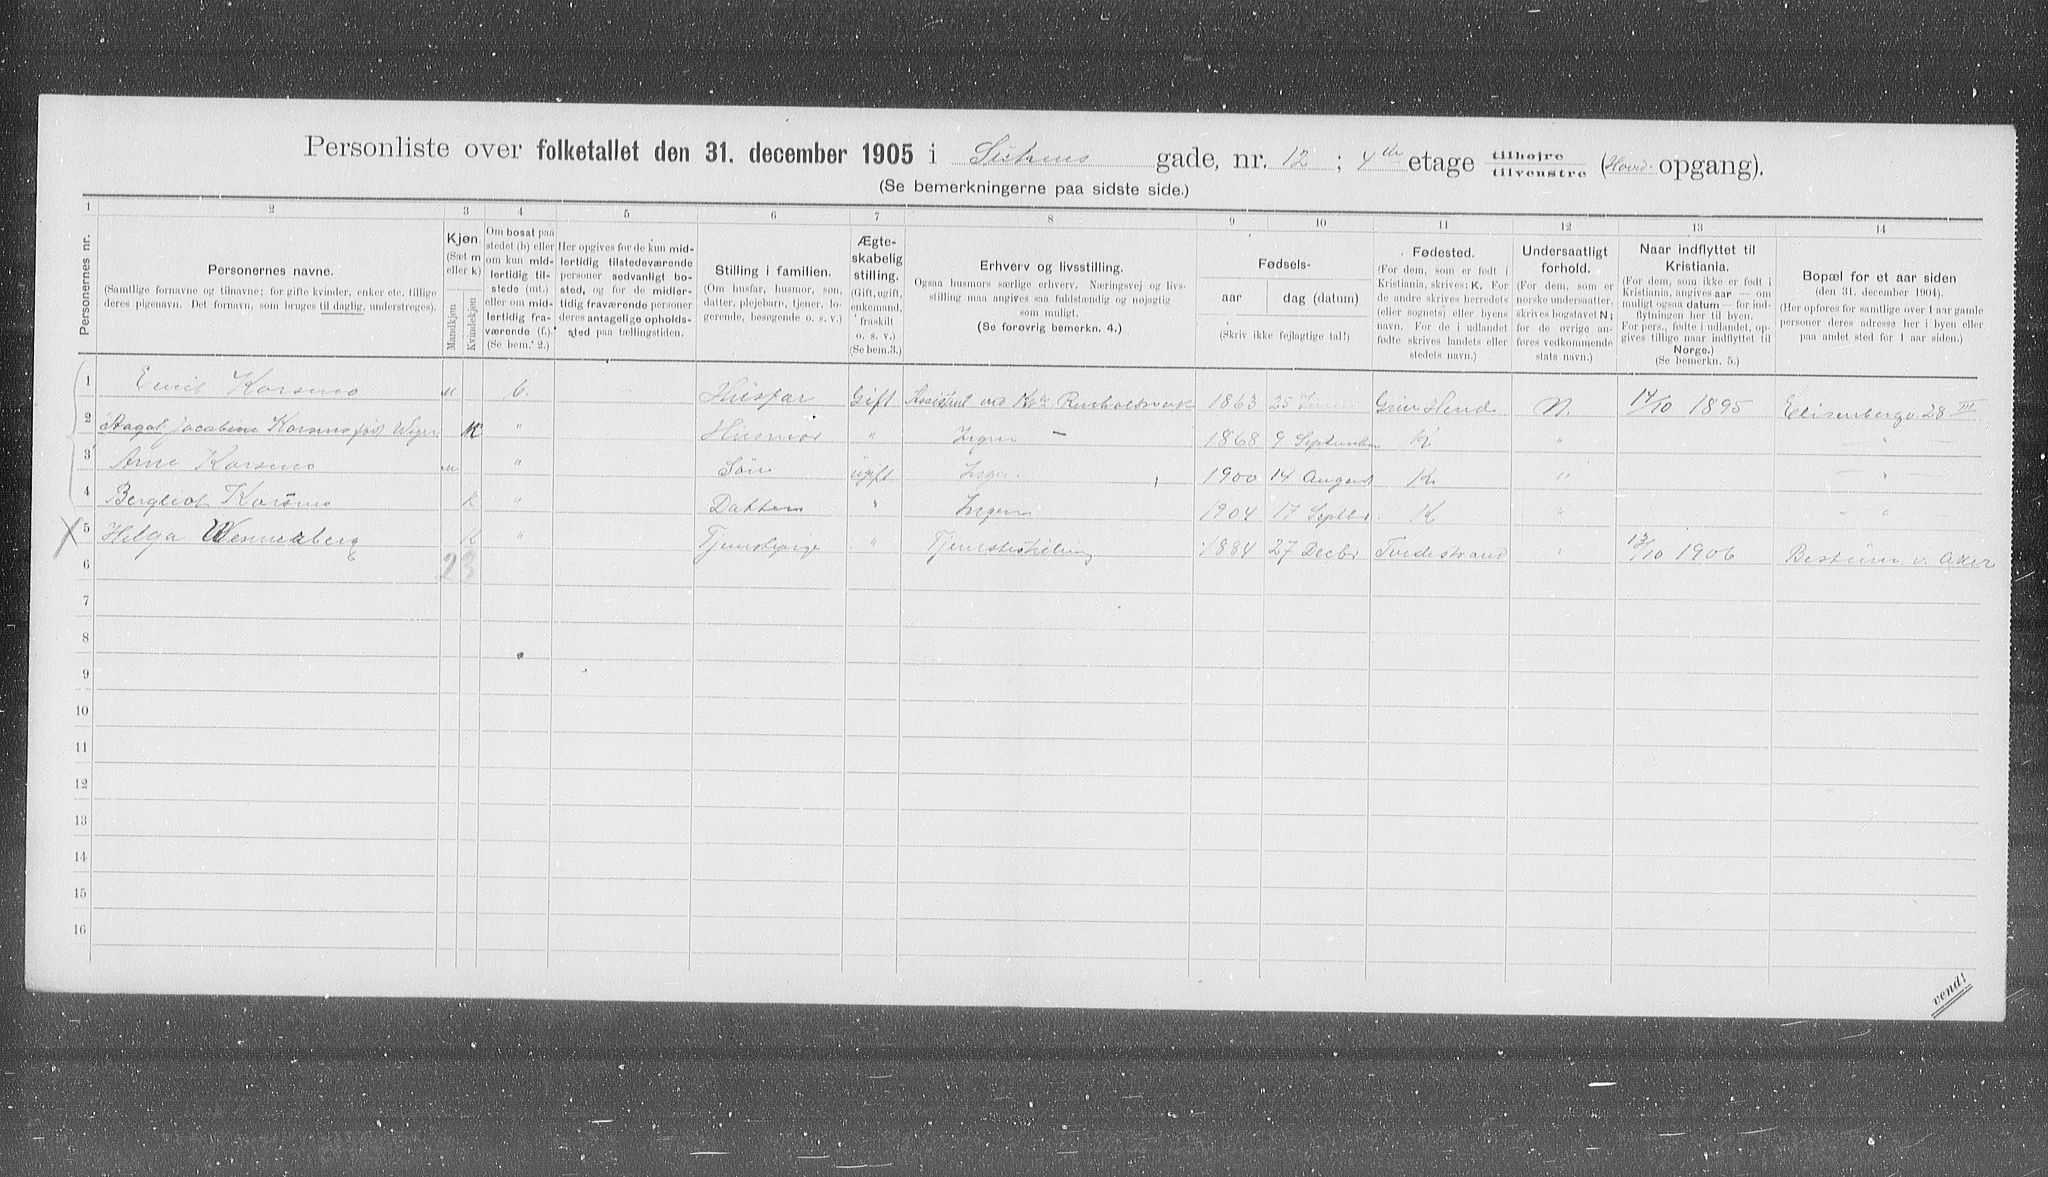 Personliste over folketallet den 31. december 1905 i gade, nr. 12; 4de etage tilhøjre tilvenstre (Hoved-opgang).
(Se bemerkningerne paa sidste side.)
1 2 3 4 5 6 7 8 9 10 11 12 13 14
Personernes nr.
Personernes navne.
(Samtlige fornavne og tilnavne; for gifte kvinder, enker etc. tillige deres pigenavn. Det fornavn, som bruges til daglig, understreges).
Kjøn. (Sæt m eller k)
Mandkjøn
Kvindekjøn
Om bosat paa stedet (b) eller om kun midlertidig tilstede (mt.) eller om midlertidig fraværende (f.). (Se bem. 2.)
Her opgives for de kun midlertidig tilstedeværende personer sedvanligt bosted, og for de midlertidig fraværende personer deres antagelige opholdssted paa tællingstiden.
Stilling i familien.
(Om husfar, husmor, søn, datter, plejebarn, tjener, logerende, besøgende o. s. v.)
Ægteskabelig stilling.
(Gift, ugift, enkemand, fraskilt o. s. v.) (Se bem.3.)
Erhverv og livsstilling.
Ogsaa husmors særlige erhverv. Næringsvej og livsstilling maa angives saa fuldstændig og nøjagtig som muligt.
(Se forøvrig bemerkn. 4.)
Fødsels-
aar
dag (datum)
(Skriv ikke fejlagtige tal!)
Fødested.
(For dem, som er født i Kristiania, skrives: K. For de andre skrives herredets (eller sognets) eller byens navn. For de i udlandet fødte skrives landets eller stedets navn.)
Undersaatligt forhold.
(For dem, som er norske undersaatter, skrives bogstavet N; for de øvrige anføres vedkommende stats navn.)
Naar indflyttet til Kristiania.
(For dem, som ikke er født i Kristiania, angives aar — om muligt ogsaa datum — for indflytningen her til byen. For pers., fødte i udlandet, opgives tillige naar indflyttet til Norge.)
(Se bemerkn. 5.)
Bopæl for et aar siden
(den 31. december 1904).
(Her opføres for samtlige over 1 aar gamle personer deres adresse her i byen eller paa andet sted for 1 aar siden.)
1 Emil Korsmo m b. Husfar Gift Assistent ved 1863 25 N. 14/10 1895 Elisenbergv 28 III
2 Aagot Jacobine Korsmo født K " Husmor " Ingen — 1868 9 September K " — " —
3 Arne Korsmo m " Søn ugift Ingen 1900 14 August K " — " —
4 Bergliot Korsmo K " Datter " Ingen 1904 17 Septbr. K " "
5 Helga Wennerberg K " Tjenestepige " Tjenestestilling 1884 27 Decbr Tvedestrand " 13/10 1906 Bestum v. Aker
6 2 3
7
8
9
10
11
12
13
14
15
16
vend!